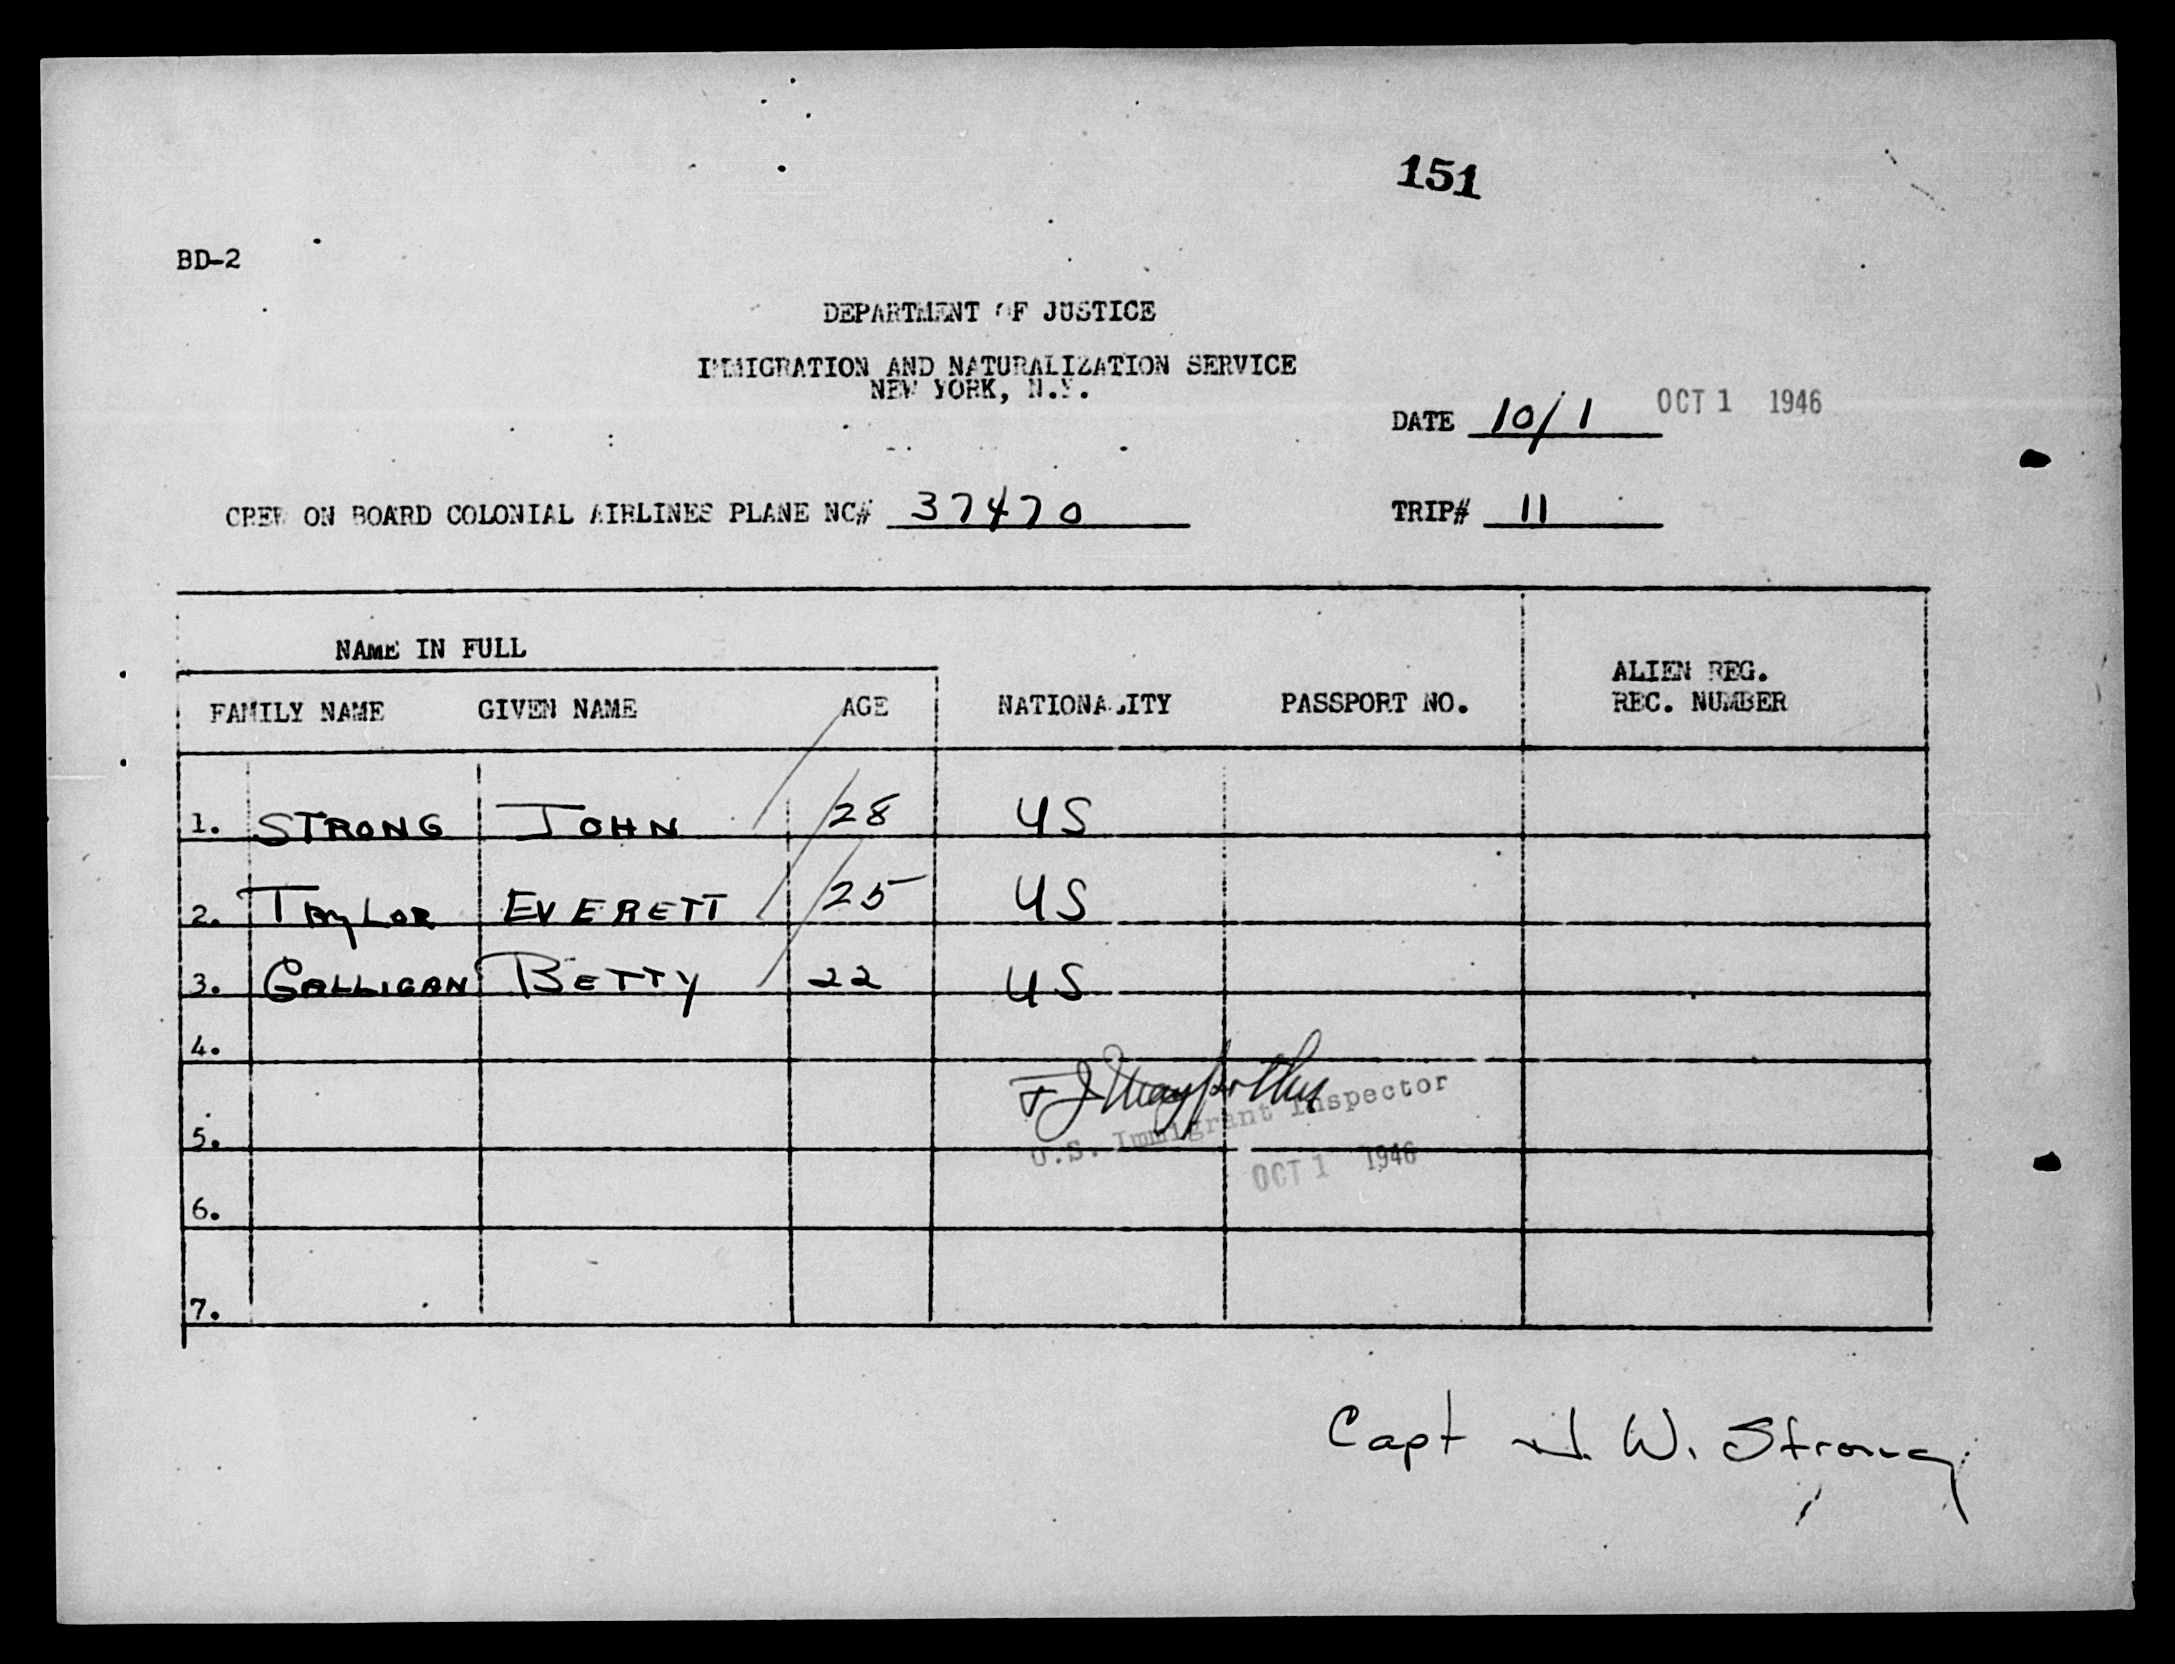 151
BD-2
DEPARTMENT OF JUSTICE
IMMIGRATION AND NATURALIZATION SERVICE
NEW YORK, N.Y.
DATE 10/1 OCT 1 1946
CREW ON BOARD COLONIAL AIRLINES PLANE NC# 37470 TRIP# 11
NAME IN FULL
FAMILY NAME GIVEN NAME AGE NATIONALITY PASSPORT NO. ALIEN REG.
REC. NUMBER
1. STRONG JOHN 28 US
2. TAYLOR EVERETT 25 US
3. GALLIGAN BETTY 22 US
4.
F J
U.S. Immigrant Inspector
5.
OCT 1 1946
6.
7.
Capt J. W. Strong